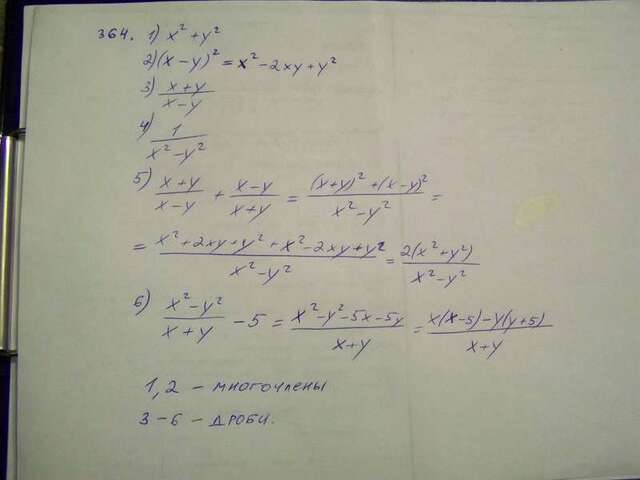 364. 1) x² + y²
2) (x – y)² = x² – 2xy + y²
3) (x + y)/(x – y)
4) 1/(x² – y²)
5) (x + y)/(x – y) + (x – y)/(x + y) = ((x + y)² + (x – y)²)/(x² – y²) =
= (x² + 2xy + y² + x² – 2xy + y²)/(x² – y²) = 2(x² + y²)/(x² – y²)
6) (x² – y²)/(x + y) – 5 = (x² – y² – 5x – 5y)/(x + y) = (x(x – 5) – y(y + 5))/(x + y)
1, 2 – многочлены
3 – 6 – дроби.